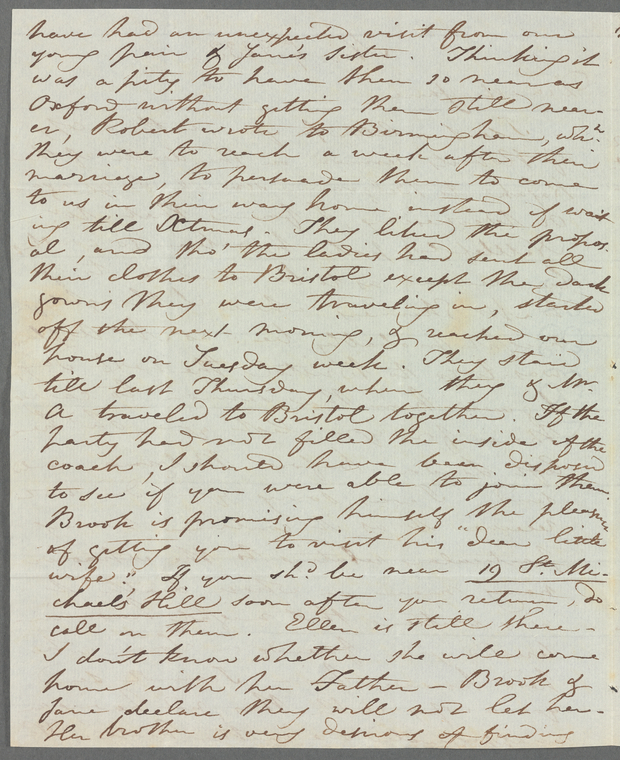 have had an unexpected visit from our
young pair & Jane's sister. Thinking it
was a pity to have them so near as
Oxford without getting them still near-
er, Robert wrote to Birmingham, whch
they were to reach a week after their
marriage, to persuade them to come
to us in their way home instead of wait
ing till Xtmas. They liked the propos
al, and tho' the ladies had sent all
their clothes to Bristol except the dark
gowns they were traveling in, started
off the next morning, & reached our
house on Tuesday week. They staid
till last Thursday, when they & Mr.
A traveled to Bristol together. If the
party had not filled the inside of the
coach, I should have been disposed
to see if you were able to join them.
Brook is promising himself the pleasure
of getting you to visit his "dear little
wife". If you shd. be near 19 St. Mi-
chael's Hill soon after you return, do
call on them. Ellen is still there -
I don't know whether she will come
home with her Father - Brook &
Jane declare they will not let her -
Her brother is very desirous of finding